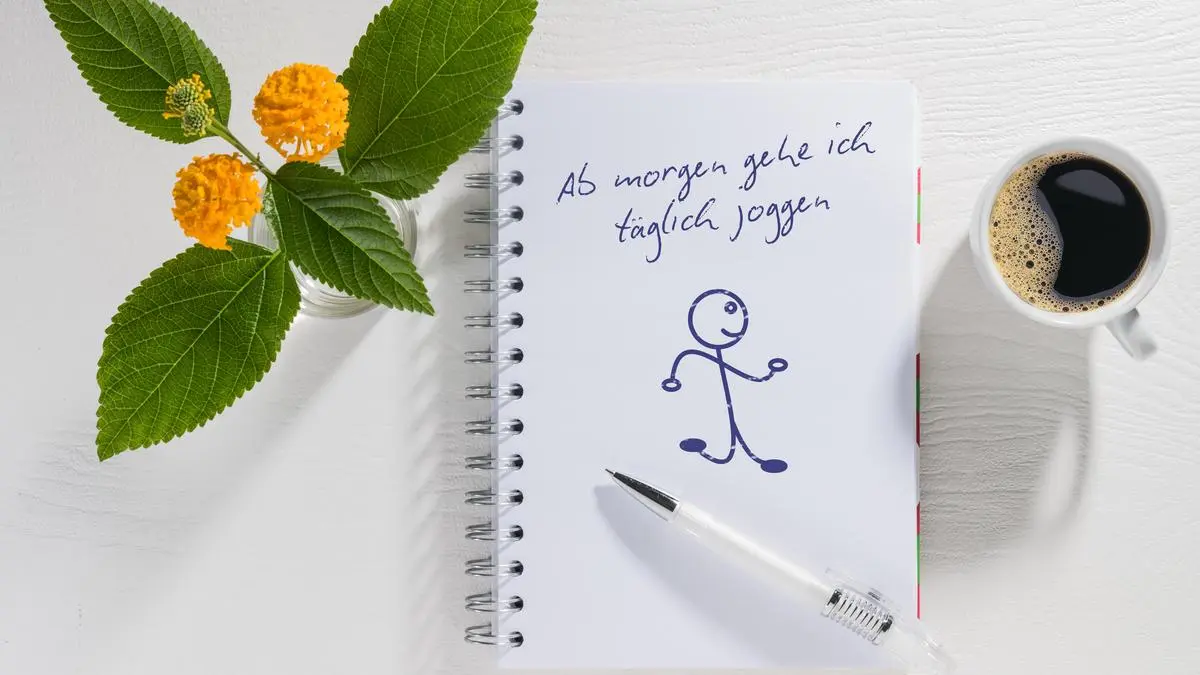 Ab morgen gehe ich
täglich joggen